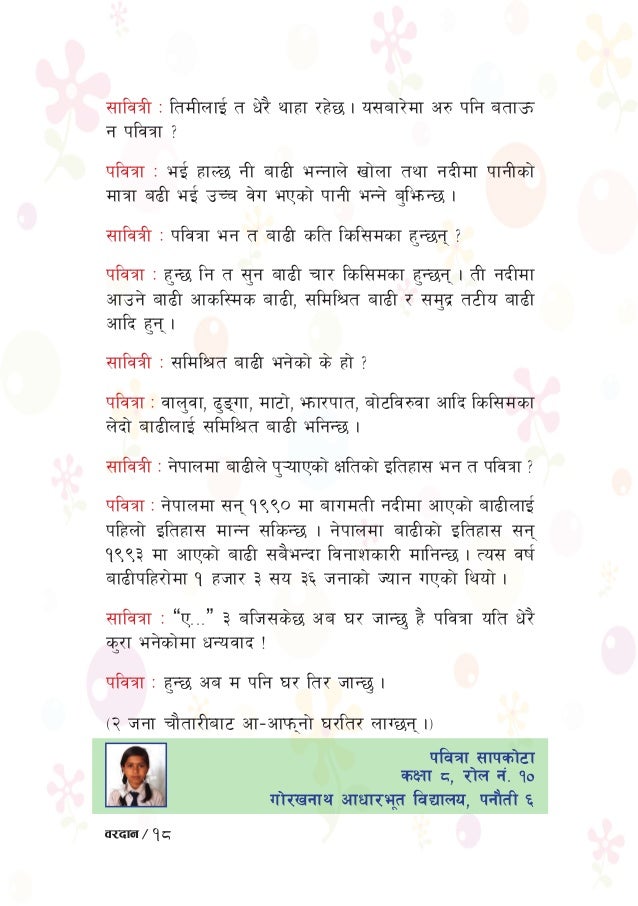 सावित्री : तिमीलाई त धेरै थाहा रहेछ । यसबारेमा अरु पनि बताऊ
न पवित्रा ?
पवित्रा : भई हाल्छ नी बाढी भन्नाले खोला तथा नदीमा पानीको
मात्रा बढी भई उच्च वेग भएको पानी भन्ने बुझिन्छ ।
सावित्री : पवित्रा भन त बाढी कति किसिमका हुन्छन् ?
पवित्रा : हुन्छ नि त सुन बाढी चार किसिमका हुन्छन् । ती नदीमा
आउने बाढी आकस्मिक बाढी, समिश्रित बाढी र समुद्र तटीय बाढी
आदि हुन् ।
सावित्री : समिश्रित बाढी भनेको के हो ?
पवित्रा : वालुवा, ढुङ्गा, माटो, झारपात, बोटविरुवा आदि किसिमका
लेदो बाढीलाई समिश्रित बाढी भनिन्छ ।
सावित्री : नेपालमा बाढीले पुर्‍याएको क्षतिको इतिहास भन त पवित्रा ?
पवित्रा : नेपालमा सन् १९९० मा बागमती नदीमा आएको बाढीलाई
पहिलो इतिहास मान्न सकिन्छ । नेपालमा बाढीको इतिहास सन्
१९९३ मा आएको बाढी सबैभन्दा विनाशकारी मानिन्छ । त्यस वर्ष
बाढीपहिरोमा १ हजार ३ सय ३६ जनाको ज्यान गएको थियो ।
सावित्री : “ए...” ३ बजिसकेछ अब घर जान्छु है पवित्रा यति धेरै
कुरा भनेकोमा धन्यवाद !
पवित्रा : हुन्छ अब म पनि घर तिर जान्छु ।
(२ जना चौतारीबाट आ-आफ्नो घरतिर लाग्छन् ।)
पवित्रा सापकोटा
कक्षा ८, रोल नं. १०
गोरखनाथ आधारभूत विद्यालय, पनौती ६
वरदान / १८